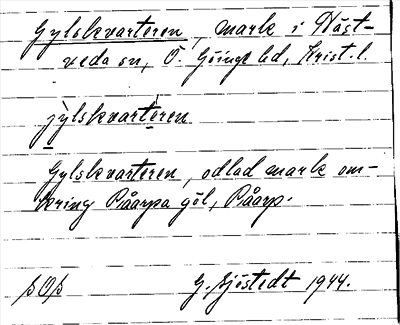 Gylskvarteren, mark i Häst-
veda sn, Ö. Göinge hd, Krist. l.
jỳlskvart́eren
Gylskvarteren, odlad mark om-
kring Påarps göl, Påarp.
G. Sjöstedt 1944.